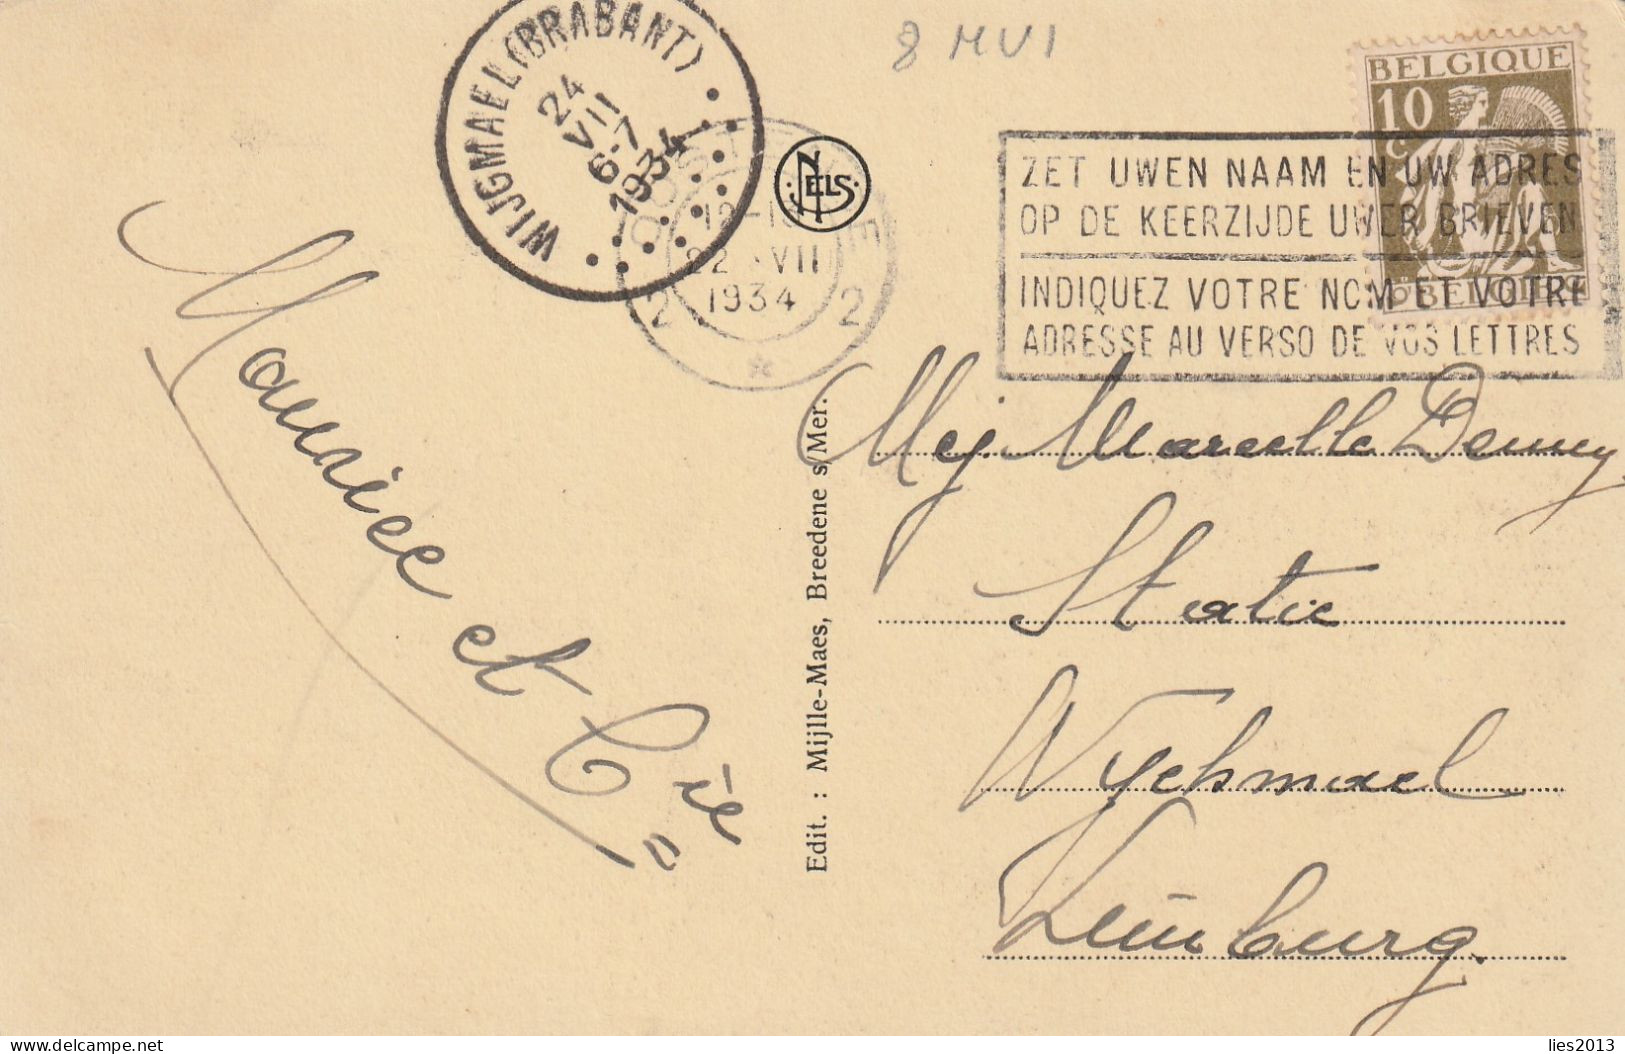 8 MVI
WIJGMAEL (BRABANT)
24
VII
6-7
1934
22 VII
1934
2 2
NELS
BELGIQUE
10
C
BELGIE
ZET UWEN NAAM EN UW ADRES
OP DE KEERZIJDE UWER BRIEVEN
INDIQUEZ VOTRE NOM ET VOTRE
ADRESSE AU VERSO DE VOS LETTRES
Maurice et Cie
Edit. : Mijlle-Maes, Breedene s/Mer.
Mej. Marcelle
Statie
Wychmael
Limburg.
lies2013